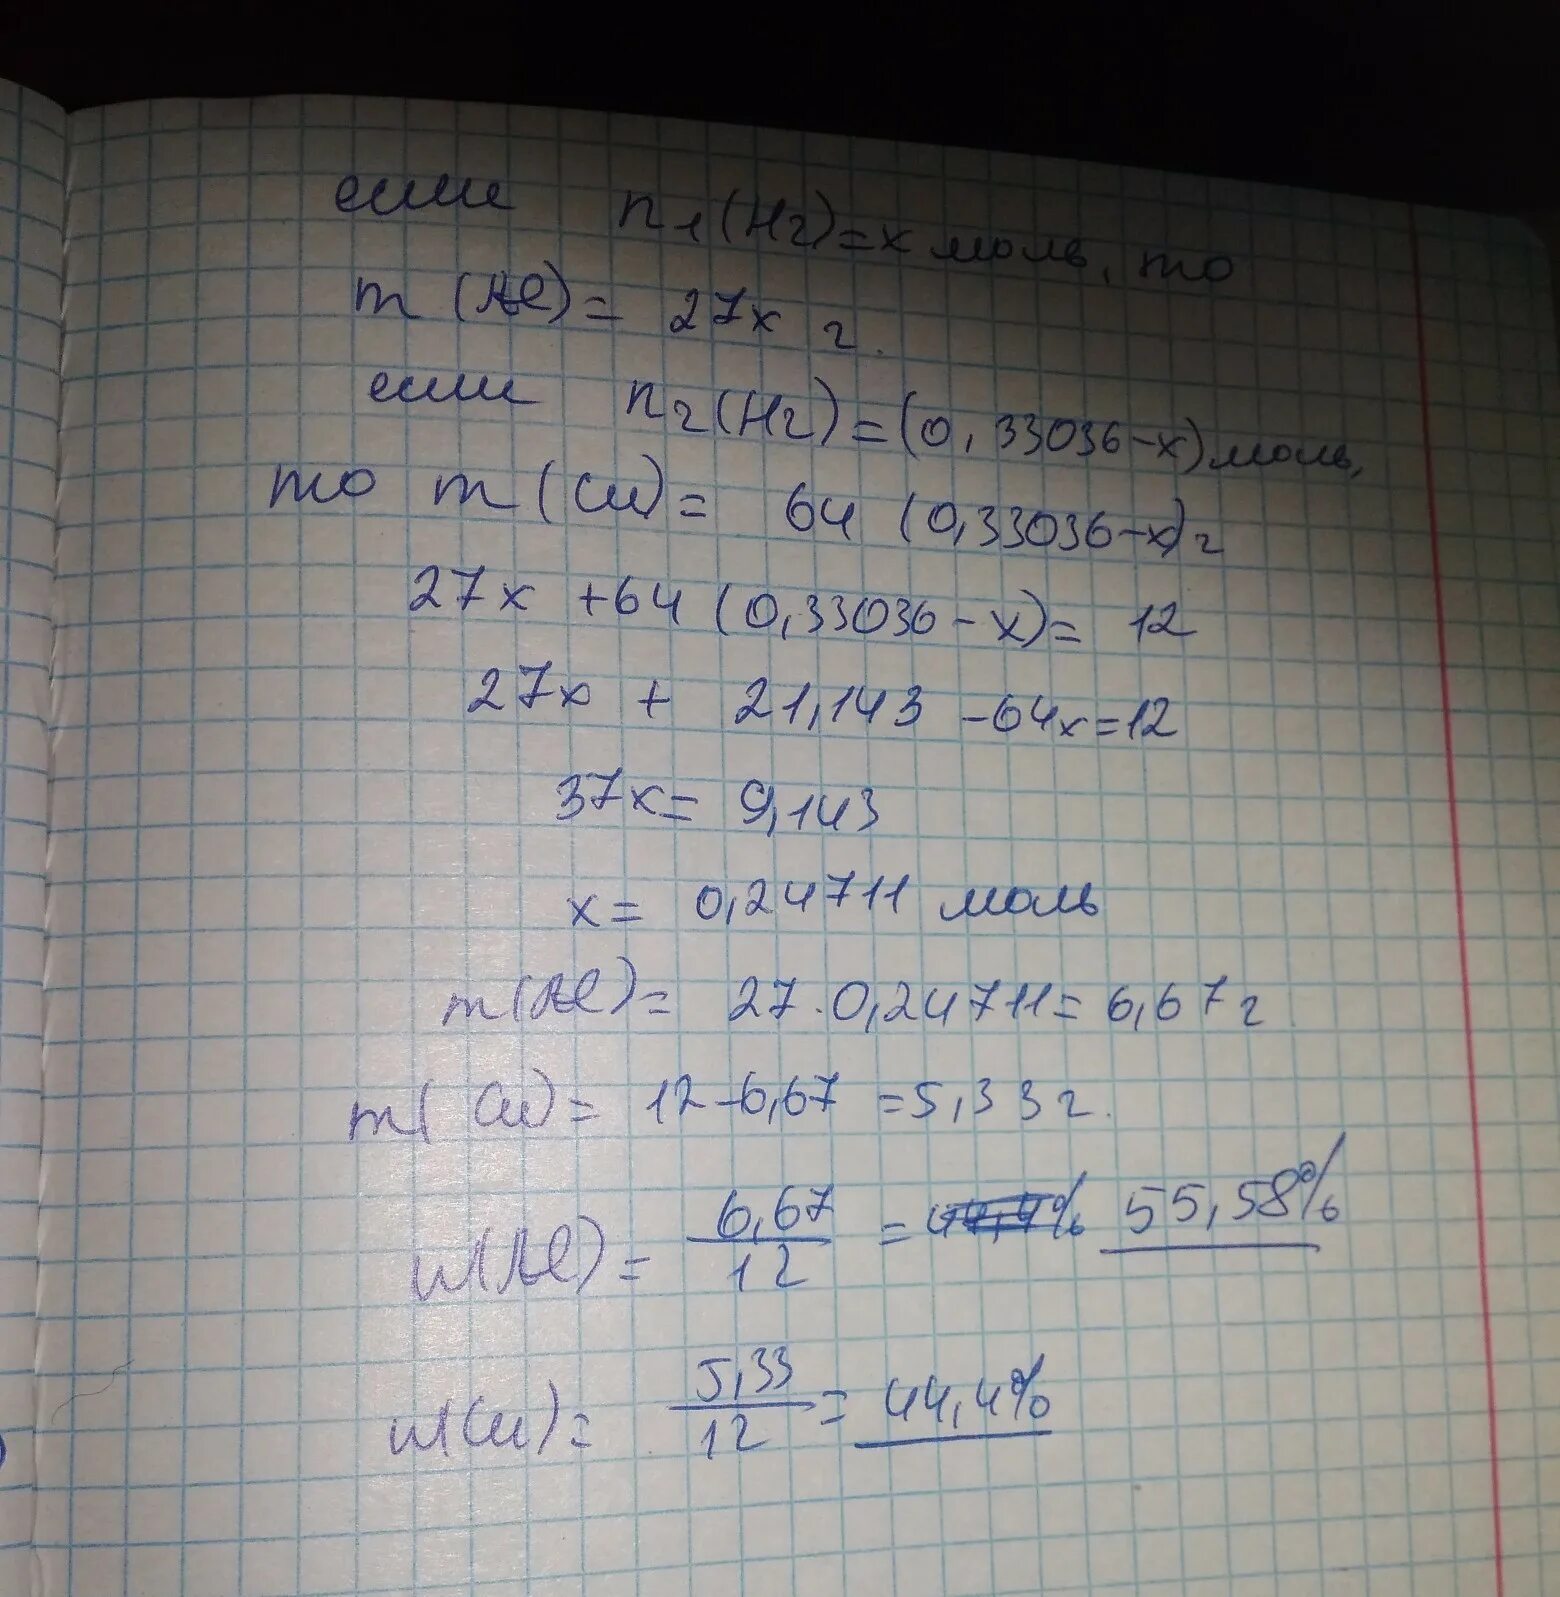 если n₁(H₂)=x моль, то
m(Al)= 27x г.
если n₂(H₂)=(0,33036-x)моль,
то m(Cu)= 64 (0,33036-x)г
27x +64 (0,33036-x)= 12
27x + 21,143 -64x=12
37x= 9,143
x= 0,24711 моль
m(Al)= 27·0,24711=6,67г
m(Cu)= 12-6,67 =5,33г.
w(Al)= 6,67/12 = 55,58%
w(Cu)= 5,33/12 = 44,4%